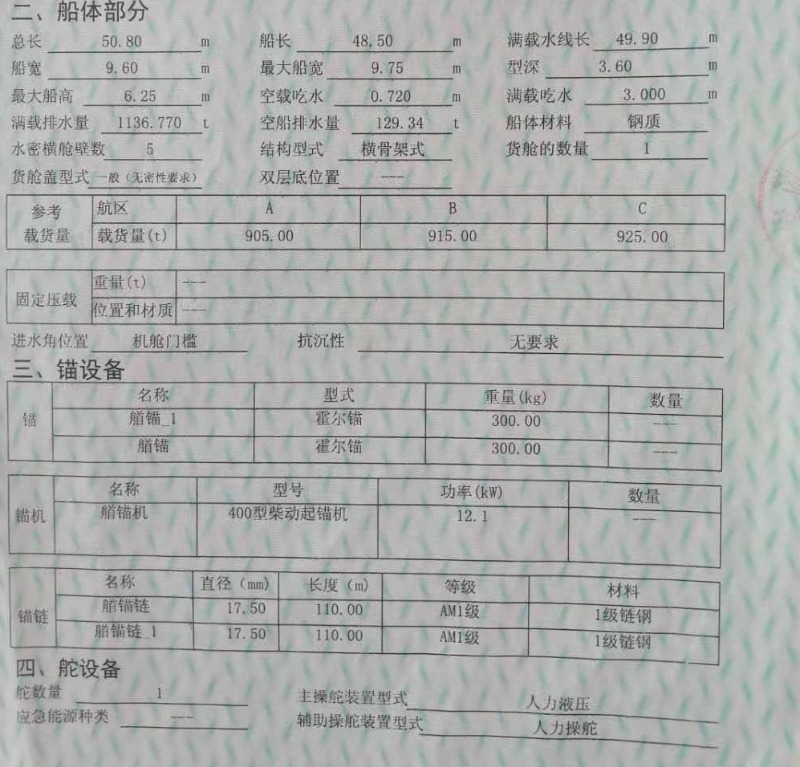 二、船体部分
总长 50.80 m 船长 48.50 m 满载水线长 49.90 m
船宽 9.60 m 最大船宽 9.75 m 型深 3.60 m
最大船高 6.25 m 空载吃水 0.720 m 满载吃水 3.000 m
满载排水量 1136.770 t 空船排水量 129.34 t 船体材料 钢质
水密横舱壁数 5 结构型式 横骨架式 货舱的数量 1
货舱盖型式 一般（无密性要求） 双层底位置 ---
参考载货量 航区 A B C
载货量(t) 905.00 915.00 925.00
固定压载 重量(t) ---
位置和材质 ---
进水角位置 机舱门槛 抗沉性 无要求
三、锚设备
锚 名称 型式 重量(kg) 数量
艏锚_1 霍尔锚 300.00 ---
艏锚 霍尔锚 300.00 ---
锚机 名称 型号 功率(kW) 数量
艏锚机 400型柴动起锚机 12.1 ---
锚链 名称 直径（mm） 长度（m） 等级 材料
艏锚链 17.50 110.00 AM1级 1级链钢
艏锚链_1 17.50 110.00 AM1级 1级链钢
四、舵设备
舵数量 1 主操舵装置型式 人力液压
应急能源种类 --- 辅助操舵装置型式 人力操舵